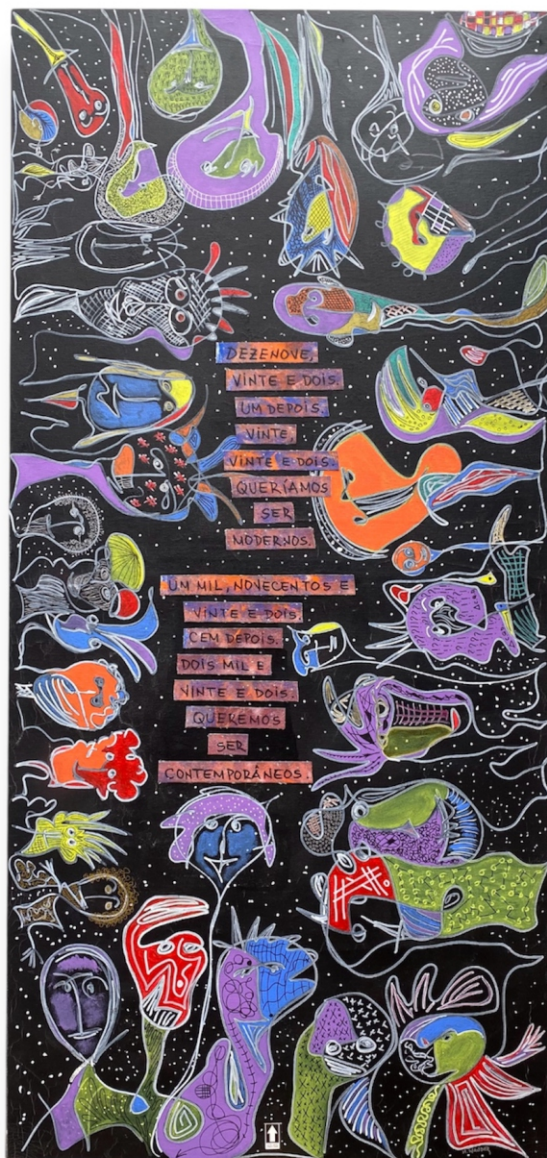 DEZENOVE,
VINTE E DOIS.
UM DEPOIS.
VINTE,
VINTE E DOIS.
QUERÍAMOS
SER
MODERNOS.
UM MIL, NOVECENTOS E
VINTE E DOIS.
CEM DEPOIS.
DOIS MIL E
VINTE E DOIS.
QUEREMOS
SER
CONTEMPORÂNEOS.